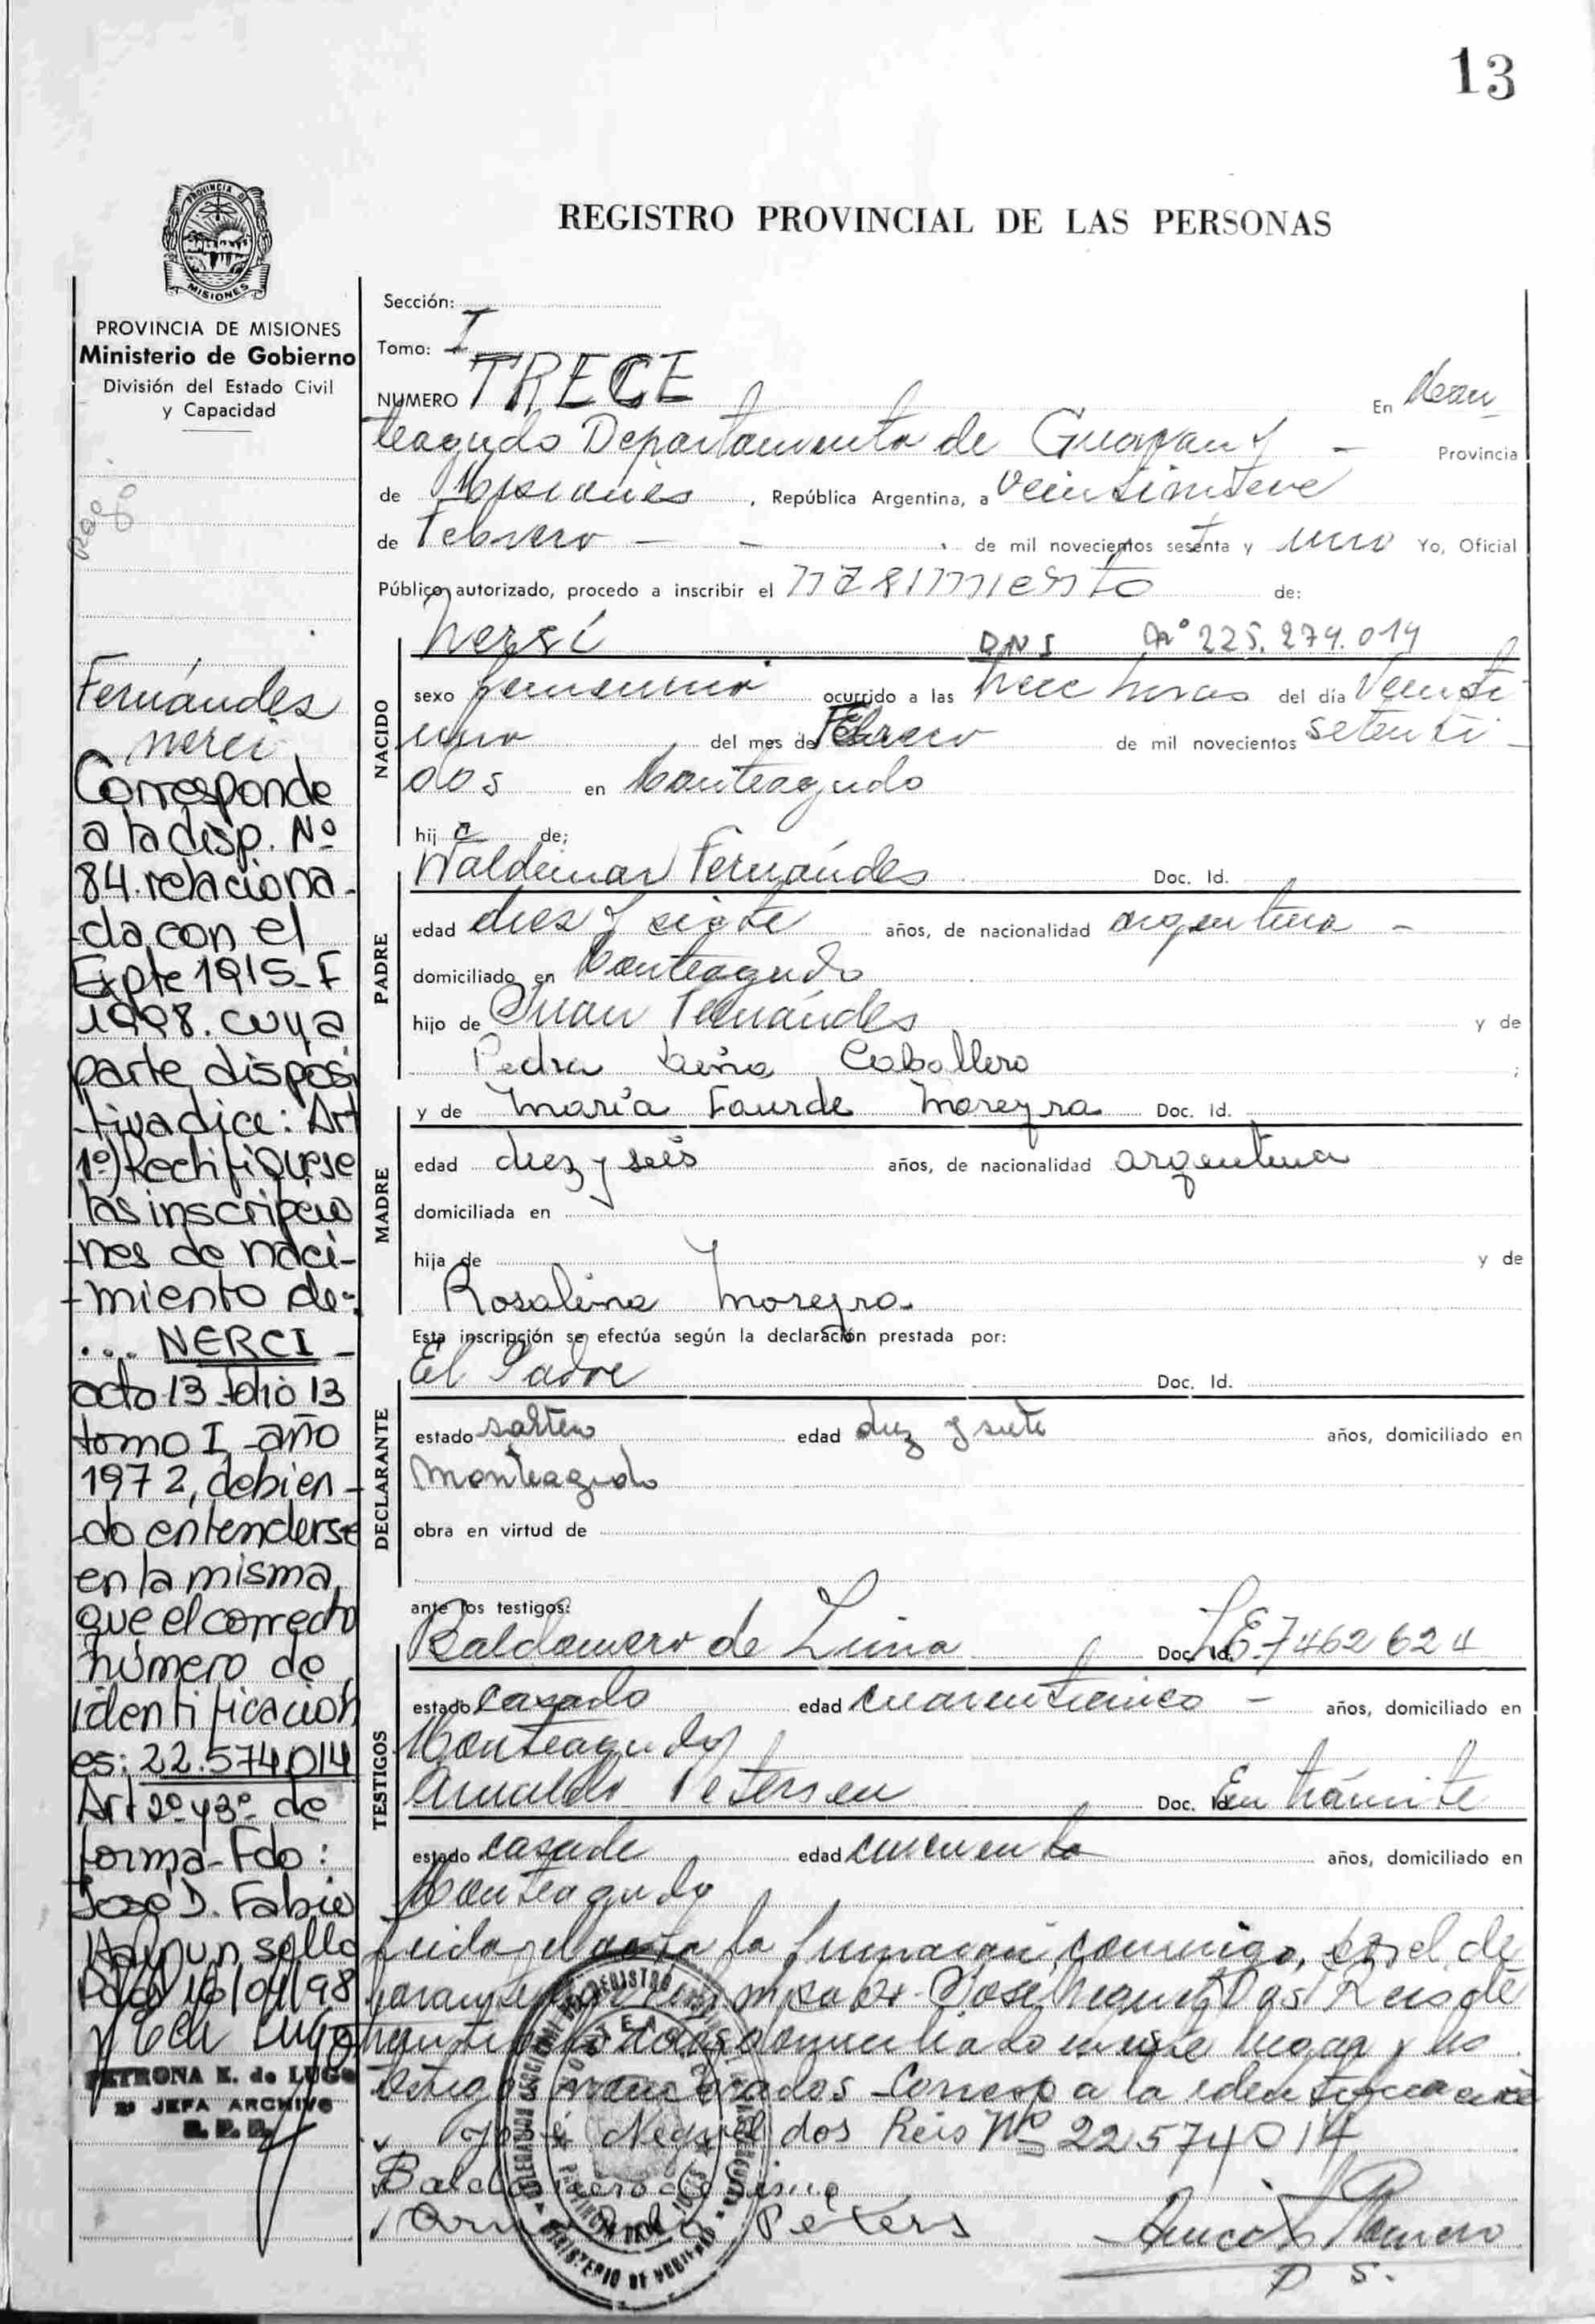 13
PROVINCIA DE
MISIONES
REGISTRO PROVINCIAL DE LAS PERSONAS
PROVINCIA DE MISIONES
Ministerio de Gobierno
División del Estado Civil
y Capacidad
Sección:
Tomo: I
NUMERO TRECE En Mon-
teagudo Departamento de Guaraní - Provincia
de Misiones, República Argentina, a veintinueve
de Febrero - - de mil novecientos sesenta y uno Yo, Oficial
Público autorizado, procedo a inscribir el nasimiento de:
Fernándes
nerci
Corresponde
a la disp. Nº
84. relaciona-
da con el
Expte 1915-F
1998. cuya
parte disposi
tiva dice: Art
1º) Rectifiquese
las inscripcio
nes de naci-
miento de:
... NERCI -
acto 13 folio 13
tomo I año
1972, debien-
do entenderse
en la misma
que el correcto
número de
identificación
es: 22.574.014
Art 2º y 3º de
forma-Fdo:
José D. Fabio
Hay un sello
Pdas 16/04/98
PETRONA E. de LUGO
JEFA ARCHIVO
R. P. P.
NACIDO
Nersí DNI Nº 225.274.014
sexo femenino ocurrido a las trece horas del día Veinti
uno del mes de Febrero de mil novecientos setenti
dos en Monteagudo
hija de:
PADRE
Waldemar Fernándes Doc. Id.
edad dies y siete años, de nacionalidad argentina -
domiciliado en Monteagudo
hijo de Juan Fernándes y de
Pedra Caballero ;
MADRE
y de María Lourde Moreyra Doc. Id.
edad diez y seis años, de nacionalidad argentina
domiciliada en
hija de y de
Rosalina Moreyra
Esta inscripción se efectúa según la declaración prestada por:
DECLARANTE
El Padre Doc. Id.
estado soltero edad diez y siete años, domiciliado en
Monteagudo
obra en virtud de
ante los testigos:
TESTIGOS
Baldomero de Lima Doc. Id. LE 7462624
estado casado edad cuarenticinco - años, domiciliado en
Monteagudo
Arnaldo Petersen Doc. Id. En trámite
estado casado edad cincuenta años, domiciliado en
Monteagudo
Leida el acta la firmaran conmigo, por el de
Jose Miguel Das Reis de
domiciliado en este lugar y los
testigos Corresp a la
José Neguel dos Reis Nº 22574014
Baldomero de Lima
Peters
D S.